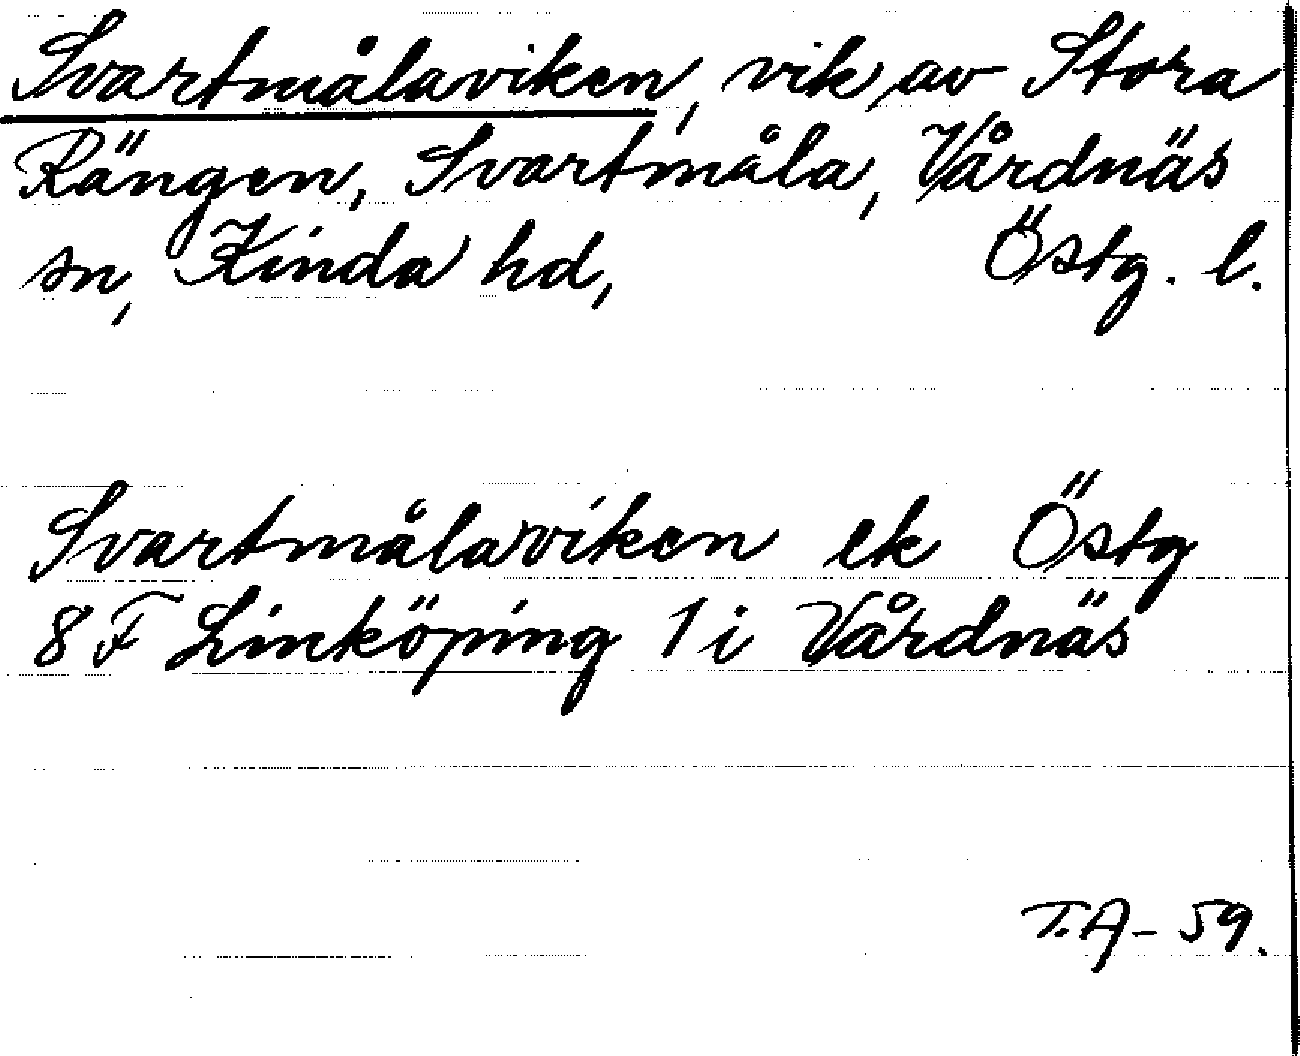 Svartmålaviken, vik av Stora
Rängen, Svartmåla, Vårdnäs
sn, Kinda hd, Östg. l.
Svartmålaviken ek Östg
8 F Linköping 1 i Vårdnäs
T.A - 59.